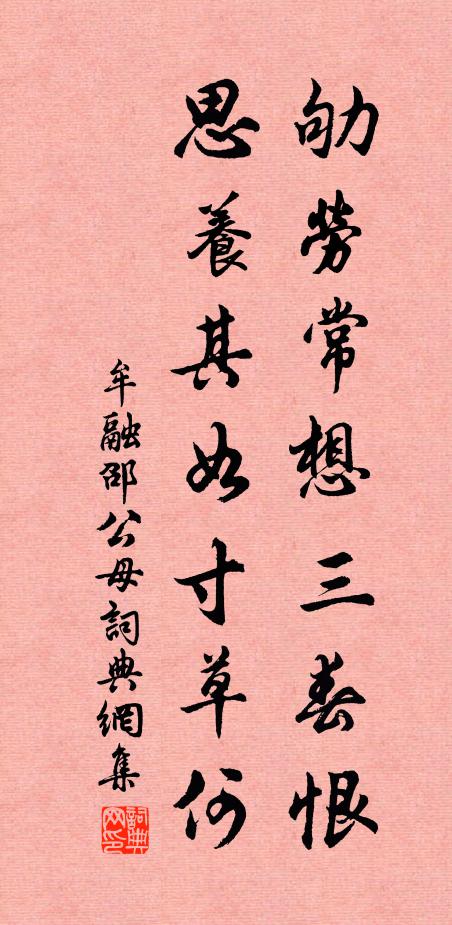 劬勞常想三春恨
思養其如寸草何
牟融邵公母詞典網集
詞典網印